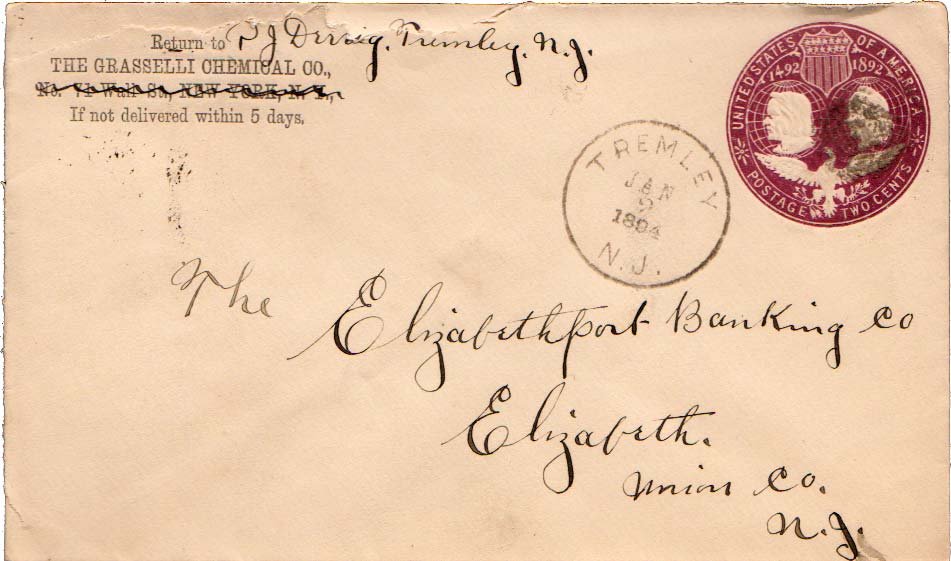 Return to P J Derrig, Tremley, N.J.
THE GRASSELLI CHEMICAL CO.,
Wall St., NEW YORK, N. Y.,
If not delivered within 5 days.
UNITED STATES OF AMERICA
1492 1892
POSTAGE TWO CENTS
TREMLEY
JAN
2
1894
N.J.
The
Elizabethport Banking Co
Elizabeth.
Union Co.
N.J.